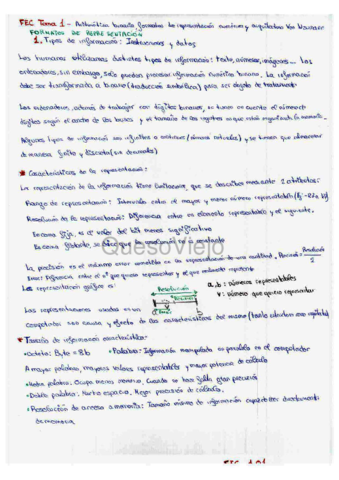 FEC Tema 1 - Aritmética binaria, formatos de representación numérica y arquitectura Von Neumann
FORMATOS DE REPRESENTACIÓN
1. Tipos de información: Instrucciones y datos
Los humanos utilizamos distintos tipos de información: texto, números, imágenes... Los
ordenadores, sin embargo, solo pueden procesar información numérica binaria. La información
debe ser transformada a binario (traducción simbólica) para ser objeto de tratamiento
Los ordenadores, además de trabajar con dígitos binarios, se tienen en cuenta el número de
dígitos según el ancho de los buses y el tamaño de los registros
Algunos tipos de información son infinitos o continuos (números naturales) y se tienen que almacenar
de manera finita y discreta
* Características de la representación:
La representación de la información tiene limitaciones, que se describen mediante 2 atributos:
Rango de representación: Intervalo entre el mayor y menor número representable
Resolución de la representación: Diferencia entre un elemento representable y el siguiente.
En coma fija, es el valor del bit menos significativo
En coma flotante, se dice que la resolución es
QuesoViejo
La precisión es el máximo error cometido en la representación de una cantidad, Precisión = Resolución / 2
Error: Diferencia entre el nº que quiero representar y el que realmente represento
Las representación gráfica es:
Resolución
a, b: números representables
v: número que quiero representar
Las representaciones usadas en un
computador son causa y efecto de las características del mismo
* Tamaño de información característicos:
• Octeto: Byte = 8b • Palabra: Información manipulada en paralelo en el computador
A mayor palabra, mayores valores representables y mayor potencia de cálculo
• Media palabra: Ocupa menos memoria, cuando no hace falta gran precisión
• Doble palabra: Mucho espacio, Mejor precisión de cálculo.
• Resolución de acceso a memoria: Tamaño mínimo de información capaz de leer directamente
de memoria
FEC 1.01